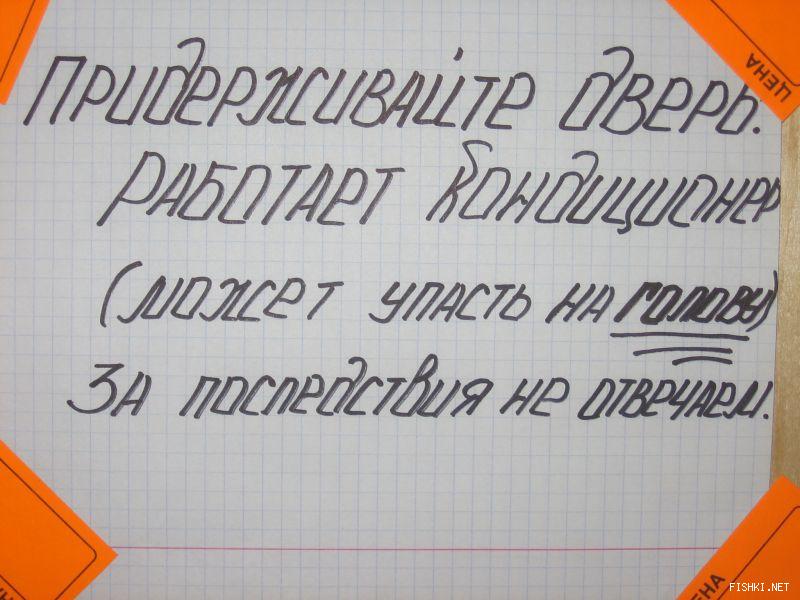 Придерживайте дверь.
Работает кондиционер
(может упасть на голову)
За последствия не отвечаем.
ЦЕНА
FISHKI.NET